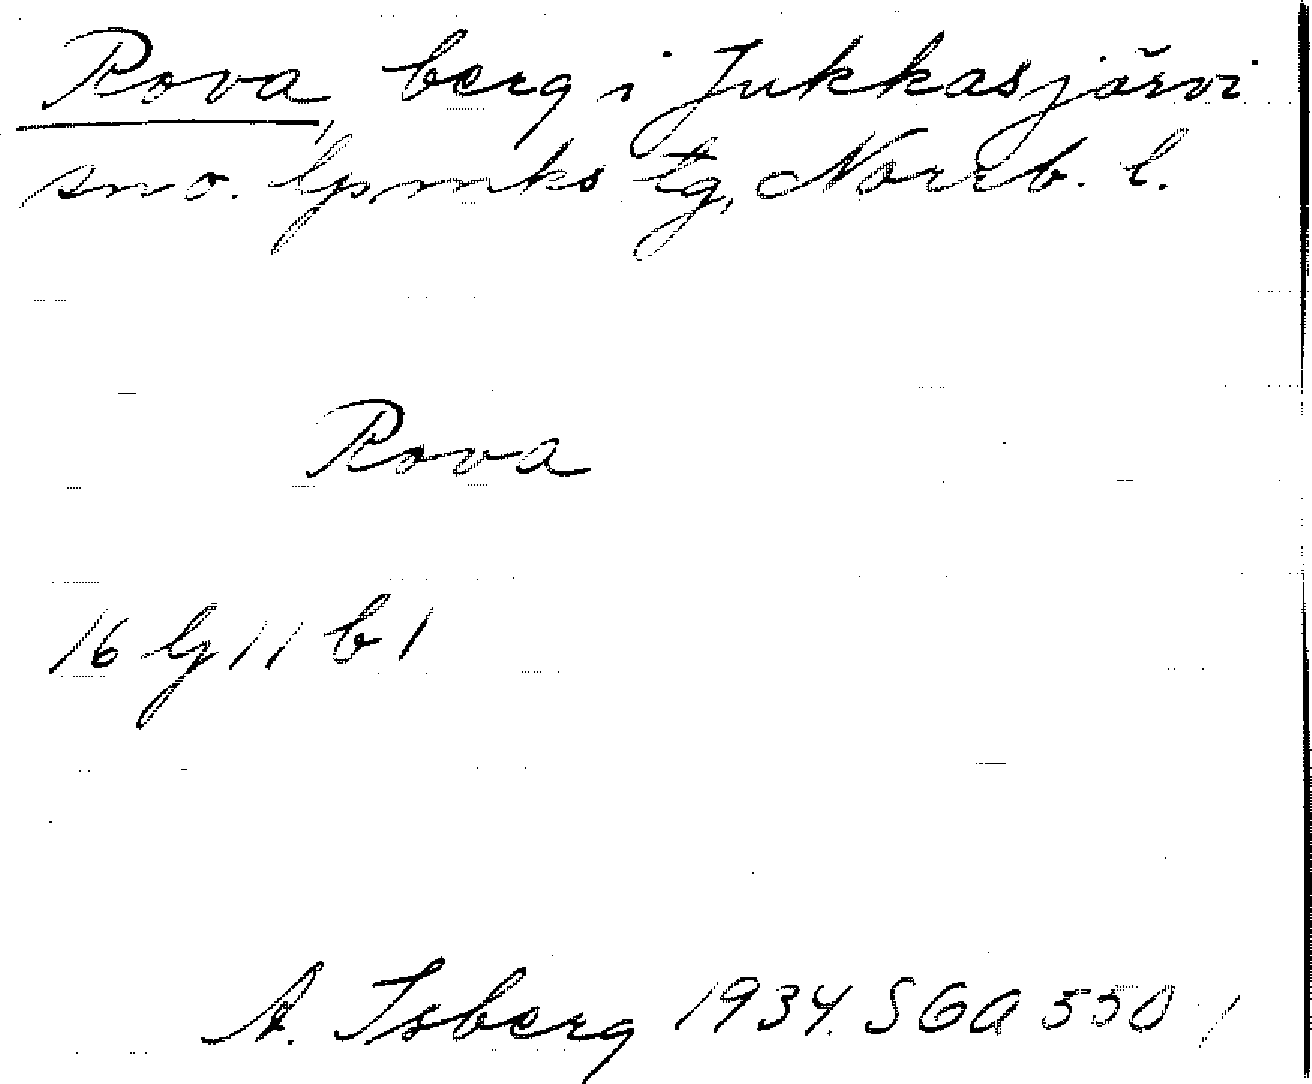 Rova, berg i Jukkasjärvi
sn o. lpmks tg, Norrb. l.
Rova
16 G 11 b 1
A. Isberg 1934. SGA 550:1